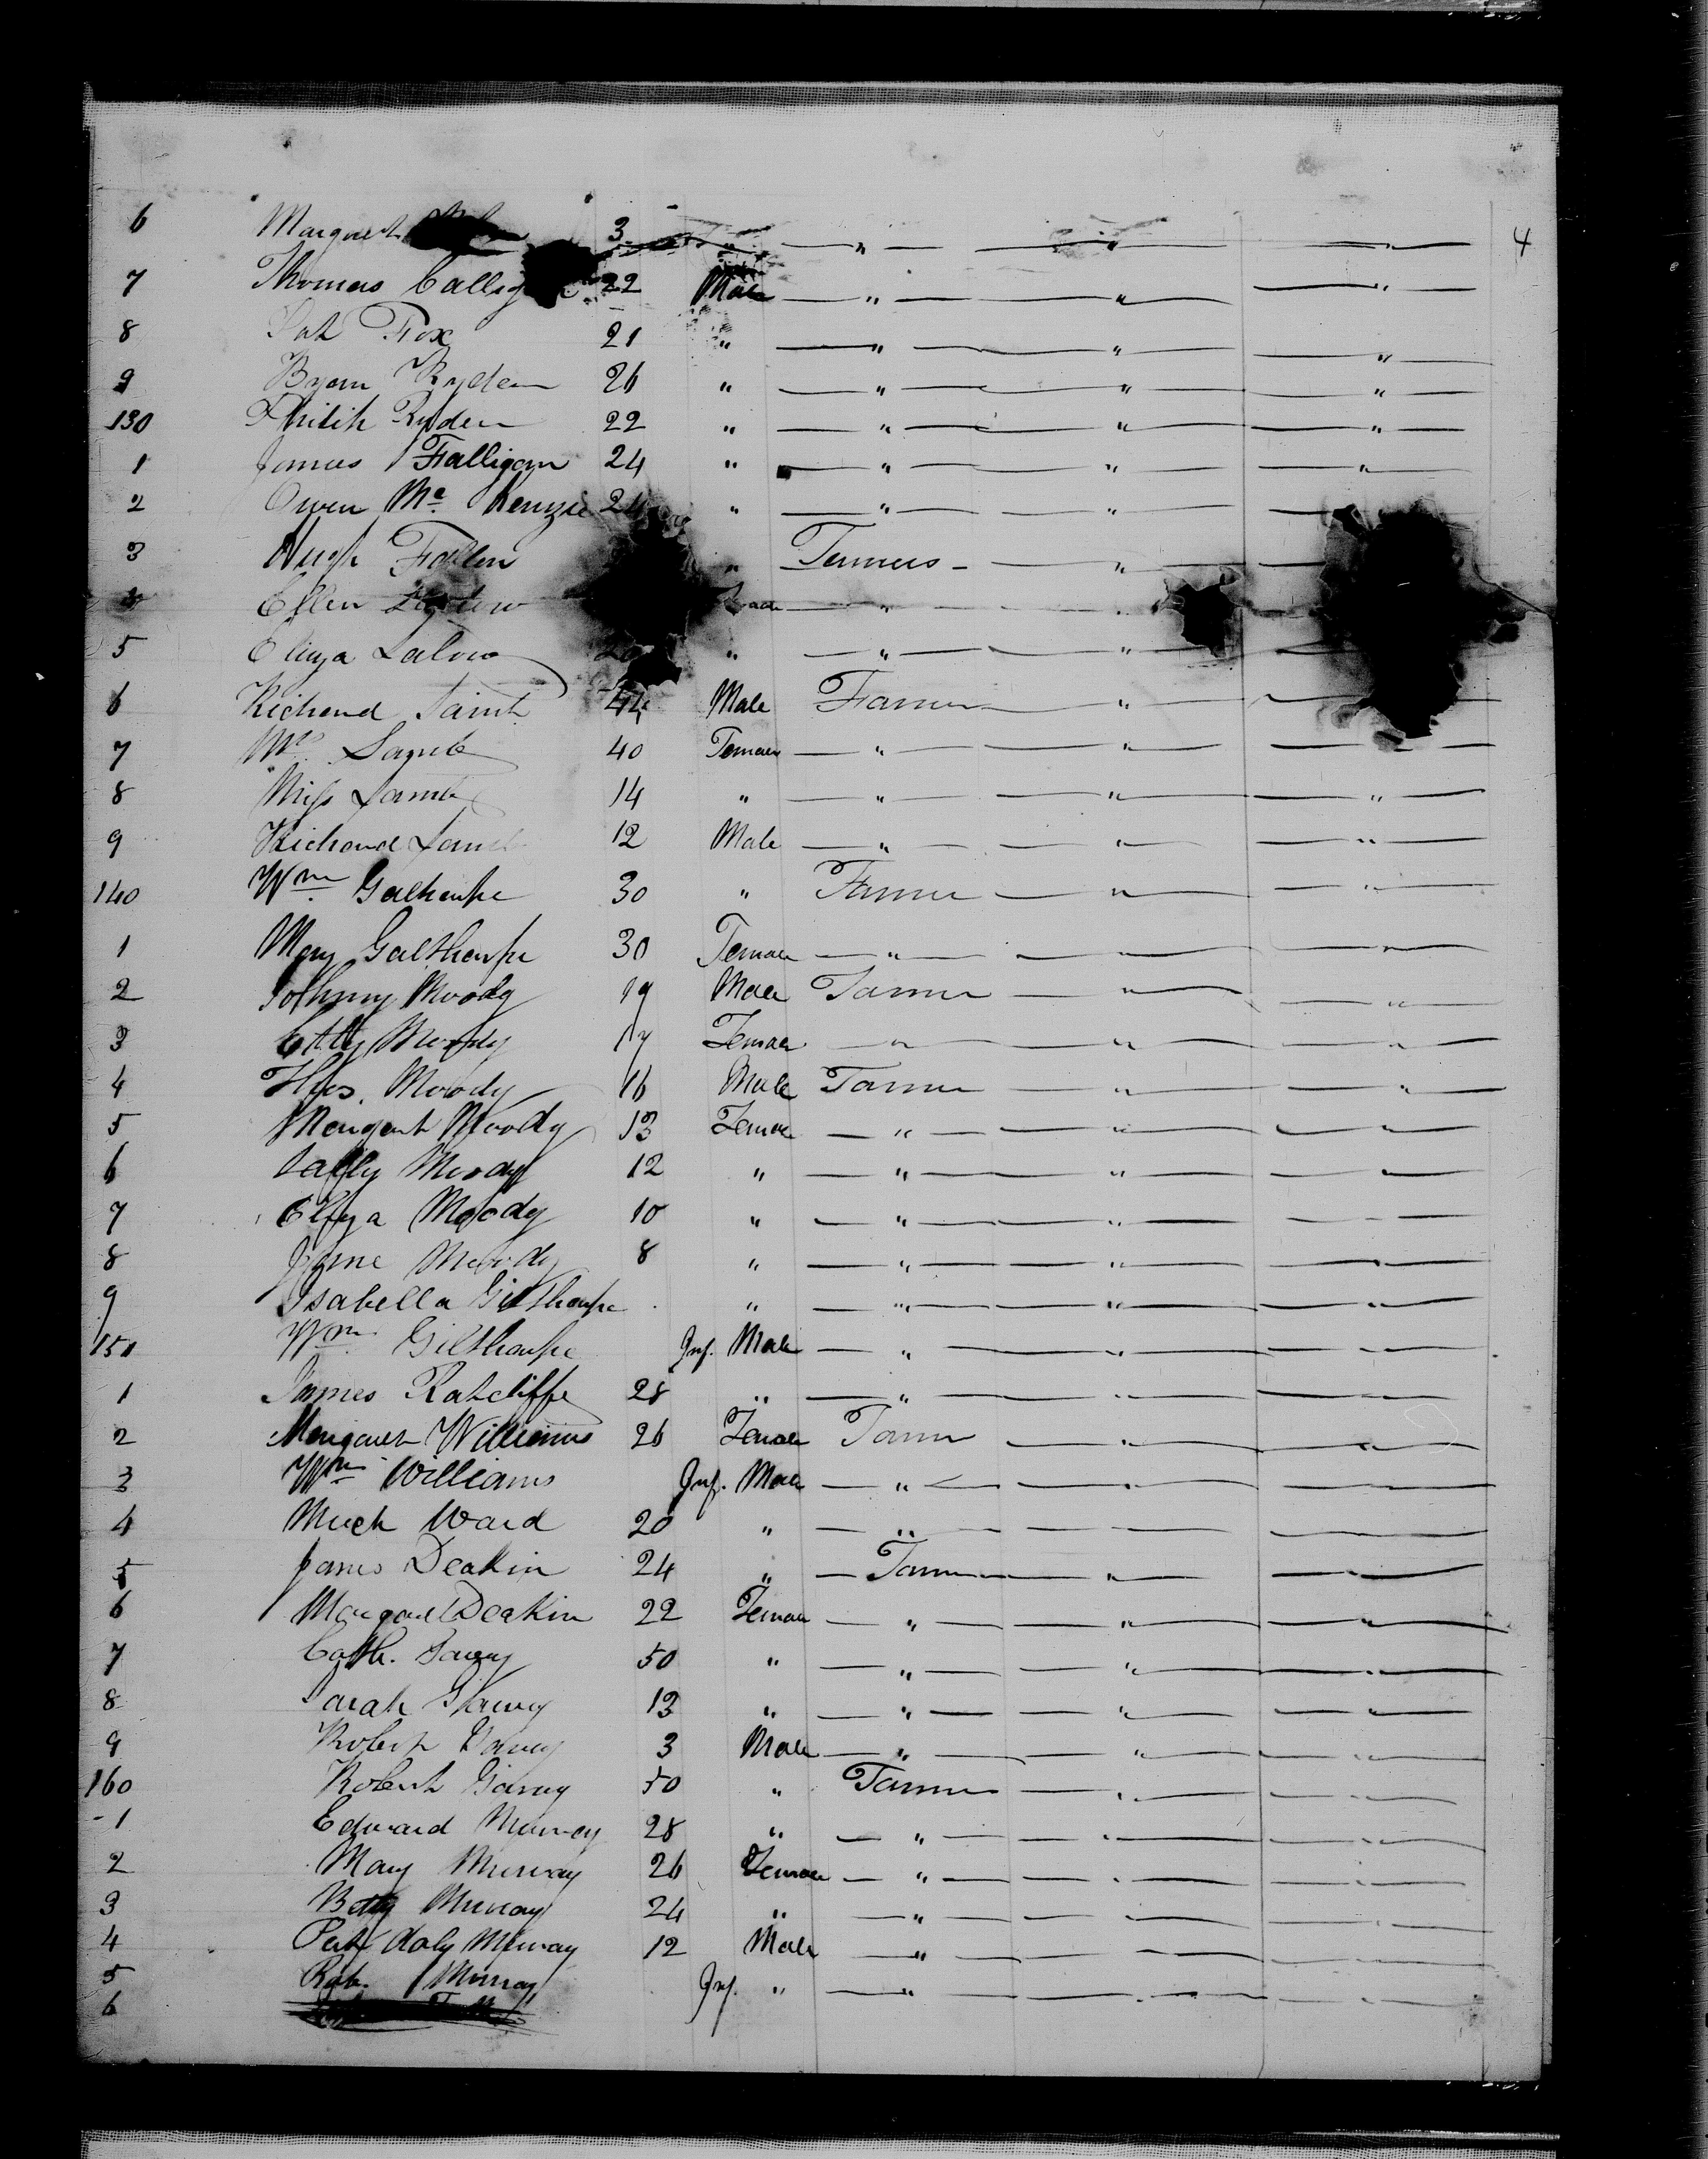 4
6 Margaret 3 " — " — — " — — " —
7 Thomas 22 Male — " — " — " —
8 Pat Fox 21 " — " — " — " —
9 Bryan Ryden 26 " — " — " — " —
130 Philip Ryden 22 " — " — " — " —
1 James Falligan 24 " — " — " — " —
2 Owen Mc Kenzie " — " — " —
3 Hugh Fallen " Farmers — " —
4 Ellen — " —
5 Eliza " — " — " —
6 Richard 44 Male Farmer — " —
7 Mrs. 40 Female — " — " — " —
8 Miss Lamb 14 " — " — " — " —
9 Richard Lamb 12 Male — " — " — " —
140 Wm Galthorpe 30 " Farmer — " — " —
1 Mary Galthorpe 30 Female — " — " — " —
2 Johnny Moody 19 Male Farmer — " — " —
3 Moody 17 Female — " — " — " —
4 Thos. Moody 16 Male Farmer — " — " —
5 Margaret Moody 13 Female — " — " — " —
6 Sally Moody 12 " — " — " — " —
7 Eliza Moody 10 " — " — " — " —
8 Jane Moody 8 " — " — " — " —
9 Isabella Gilthorpe " — " — " — " —
150 Wm Gilthorpe Inf. Male — " — " — " —
1 James Ratcliffe 28 " — " — " — " —
2 Margaret Williams 26 Female Farmer — " — " —
3 Wm Williams Inf. Male — " — " — —
4 Mich Ward 20 " — " — — —
5 James Deakin 24 " — Farmer — " — " —
6 Margaret Deakin 22 Female — " — " — " —
7 Cath. 50 " — " — " — " —
8 Sarah 13 " — " — " — " —
9 Robert 3 Male — " — " — " —
160 Robert 50 " Farmer — " — " —
1 Edward Murray 28 " — " — " — " —
2 Mary Murray 26 Female — " — " — " —
3 Betty Murray 24 " — " — " — " —
4 Pat daly Murray 12 Male — " — " — " —
5 Rob. Murray Inf. " — " — " — " —
6